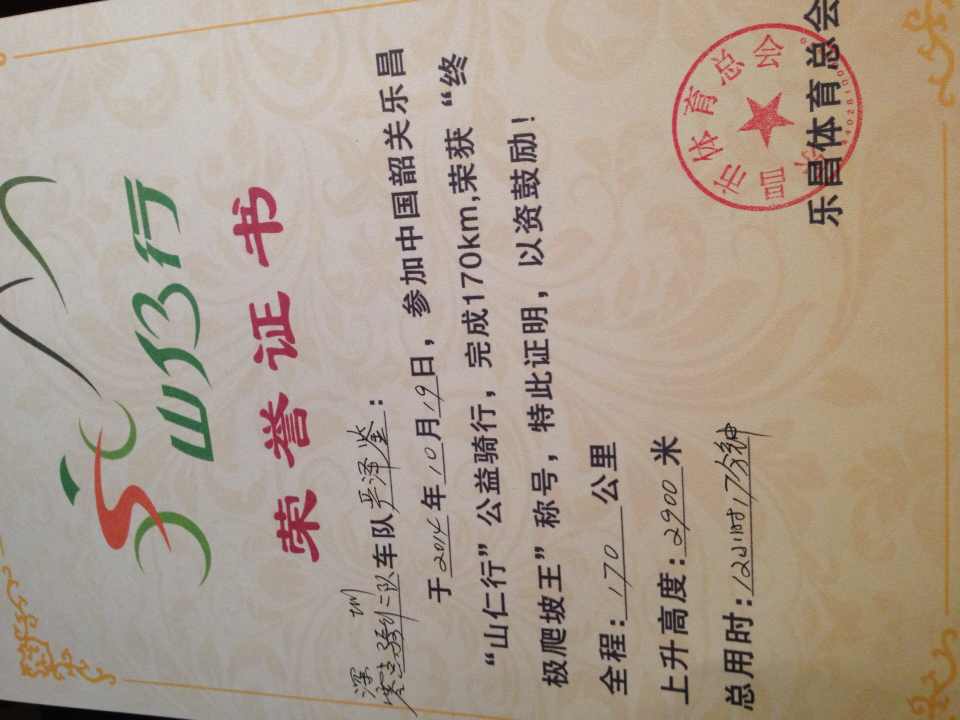 山仁行
荣誉证书
深圳
骑行二队车队严泽鉴：
于2014年10月19日，参加中国韶关乐昌
“山仁行”公益骑行，完成170km,荣获“终
极爬坡王”称号，特此证明，以资鼓励！
全程：170公里
上升高度：2900米
总用时：12小时17分钟
乐昌体育总会
乐昌市体育总会